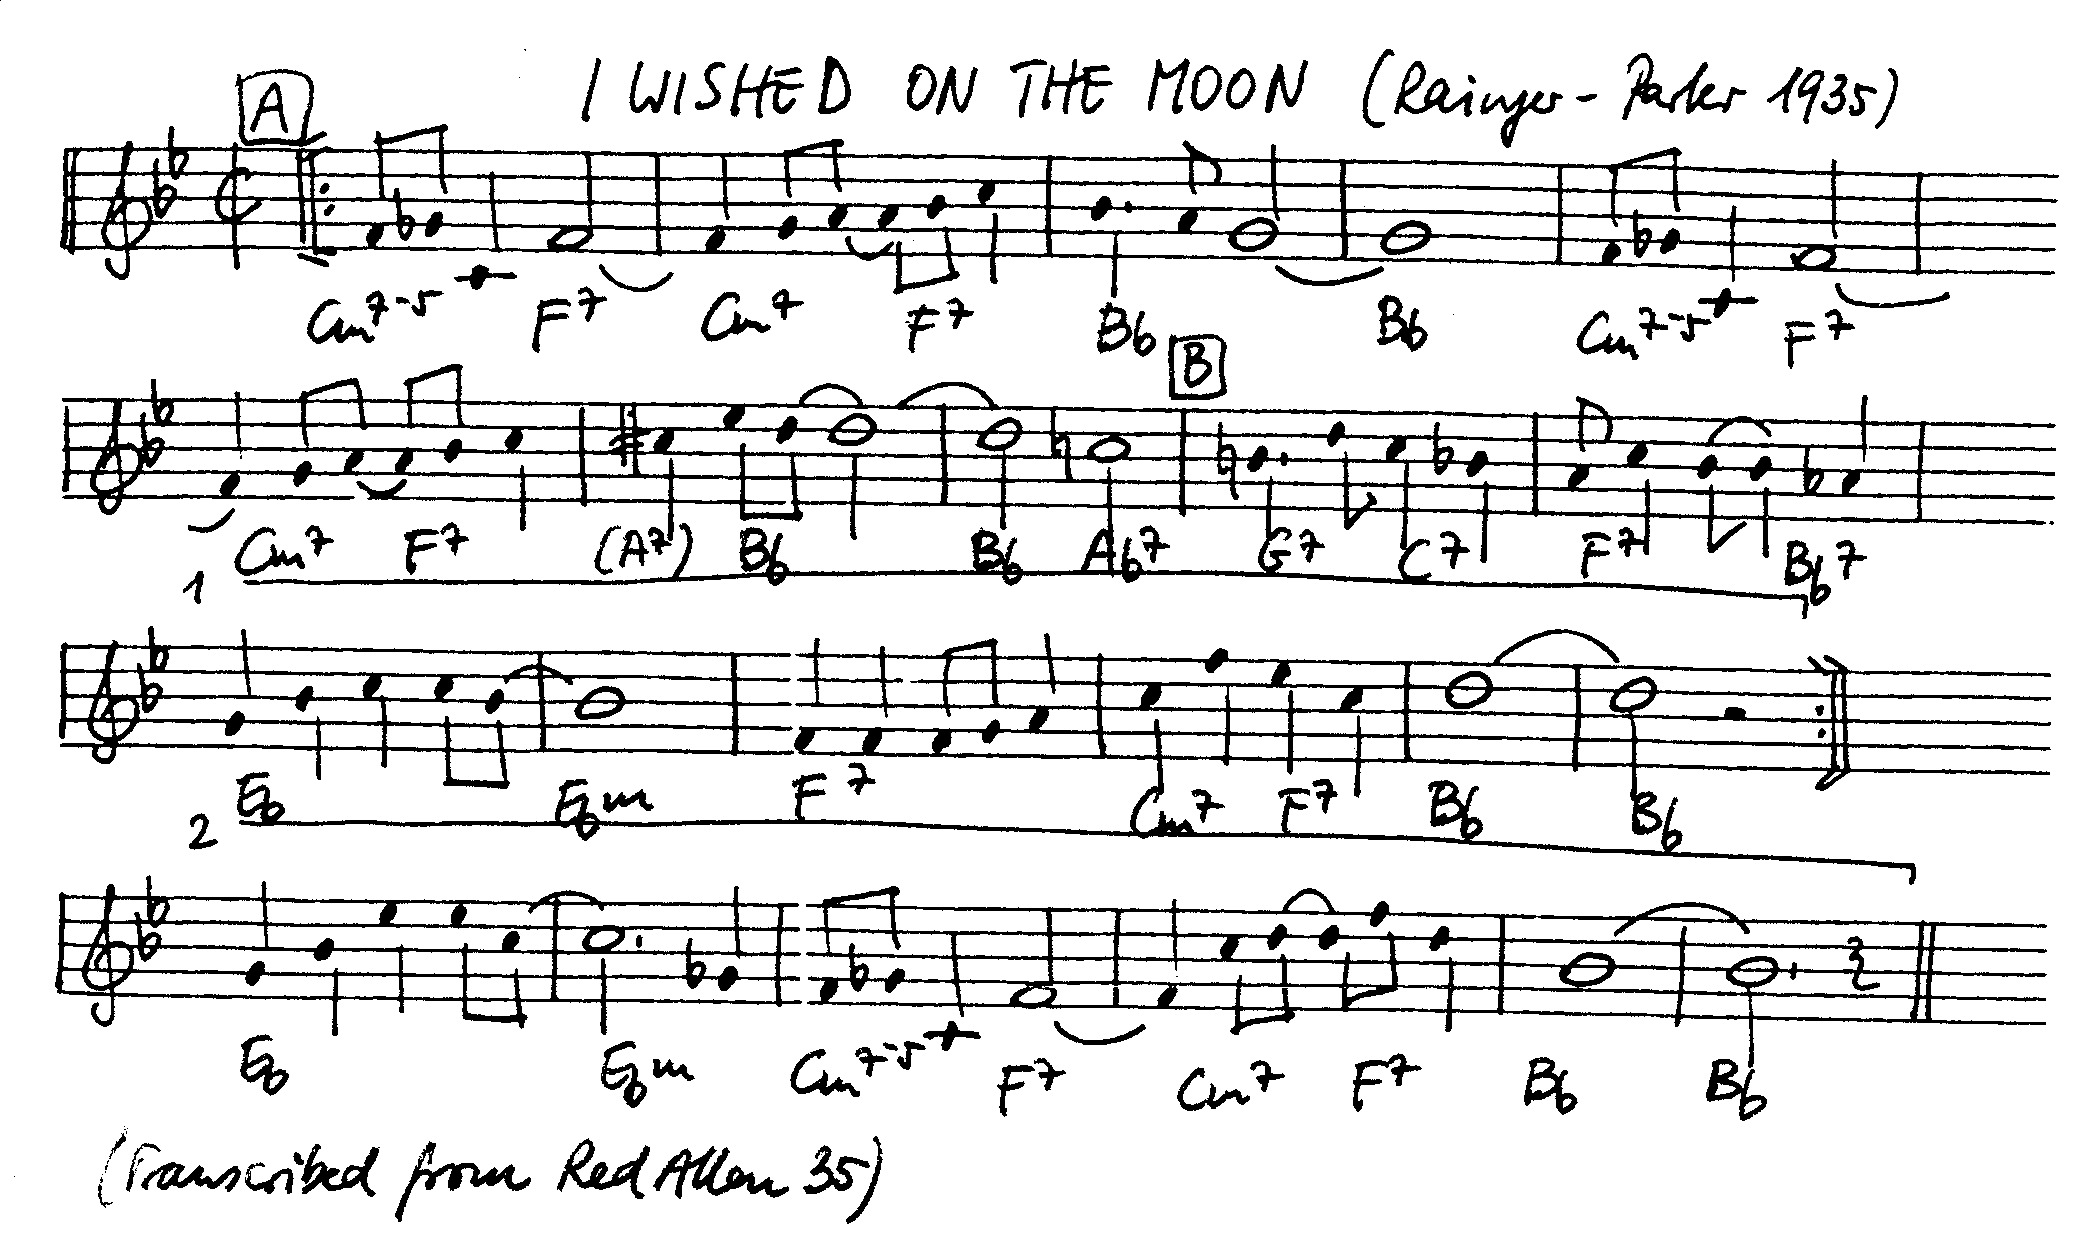 I WISHED ON THE MOON (Rainger - Parker 1935)
A
Cm7-5 F7 Cm7 F7 Bb Bb Cm7-5 F7
B
Cm7 F7 (A7) Bb Bb Ab7 G7 C7 F7 Bb7
1
Eb Ebm F7 Cm7 F7 Bb Bb
2
Eb Ebm Cm7-5 F7 Cm7 F7 Bb Bb
(Transcribed from Red Allen 35)